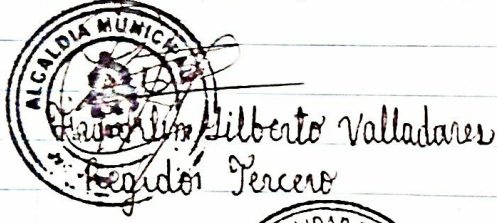 ALCALDIA MUNICIPAL
Gilberto Valladares
Regidor Tercero